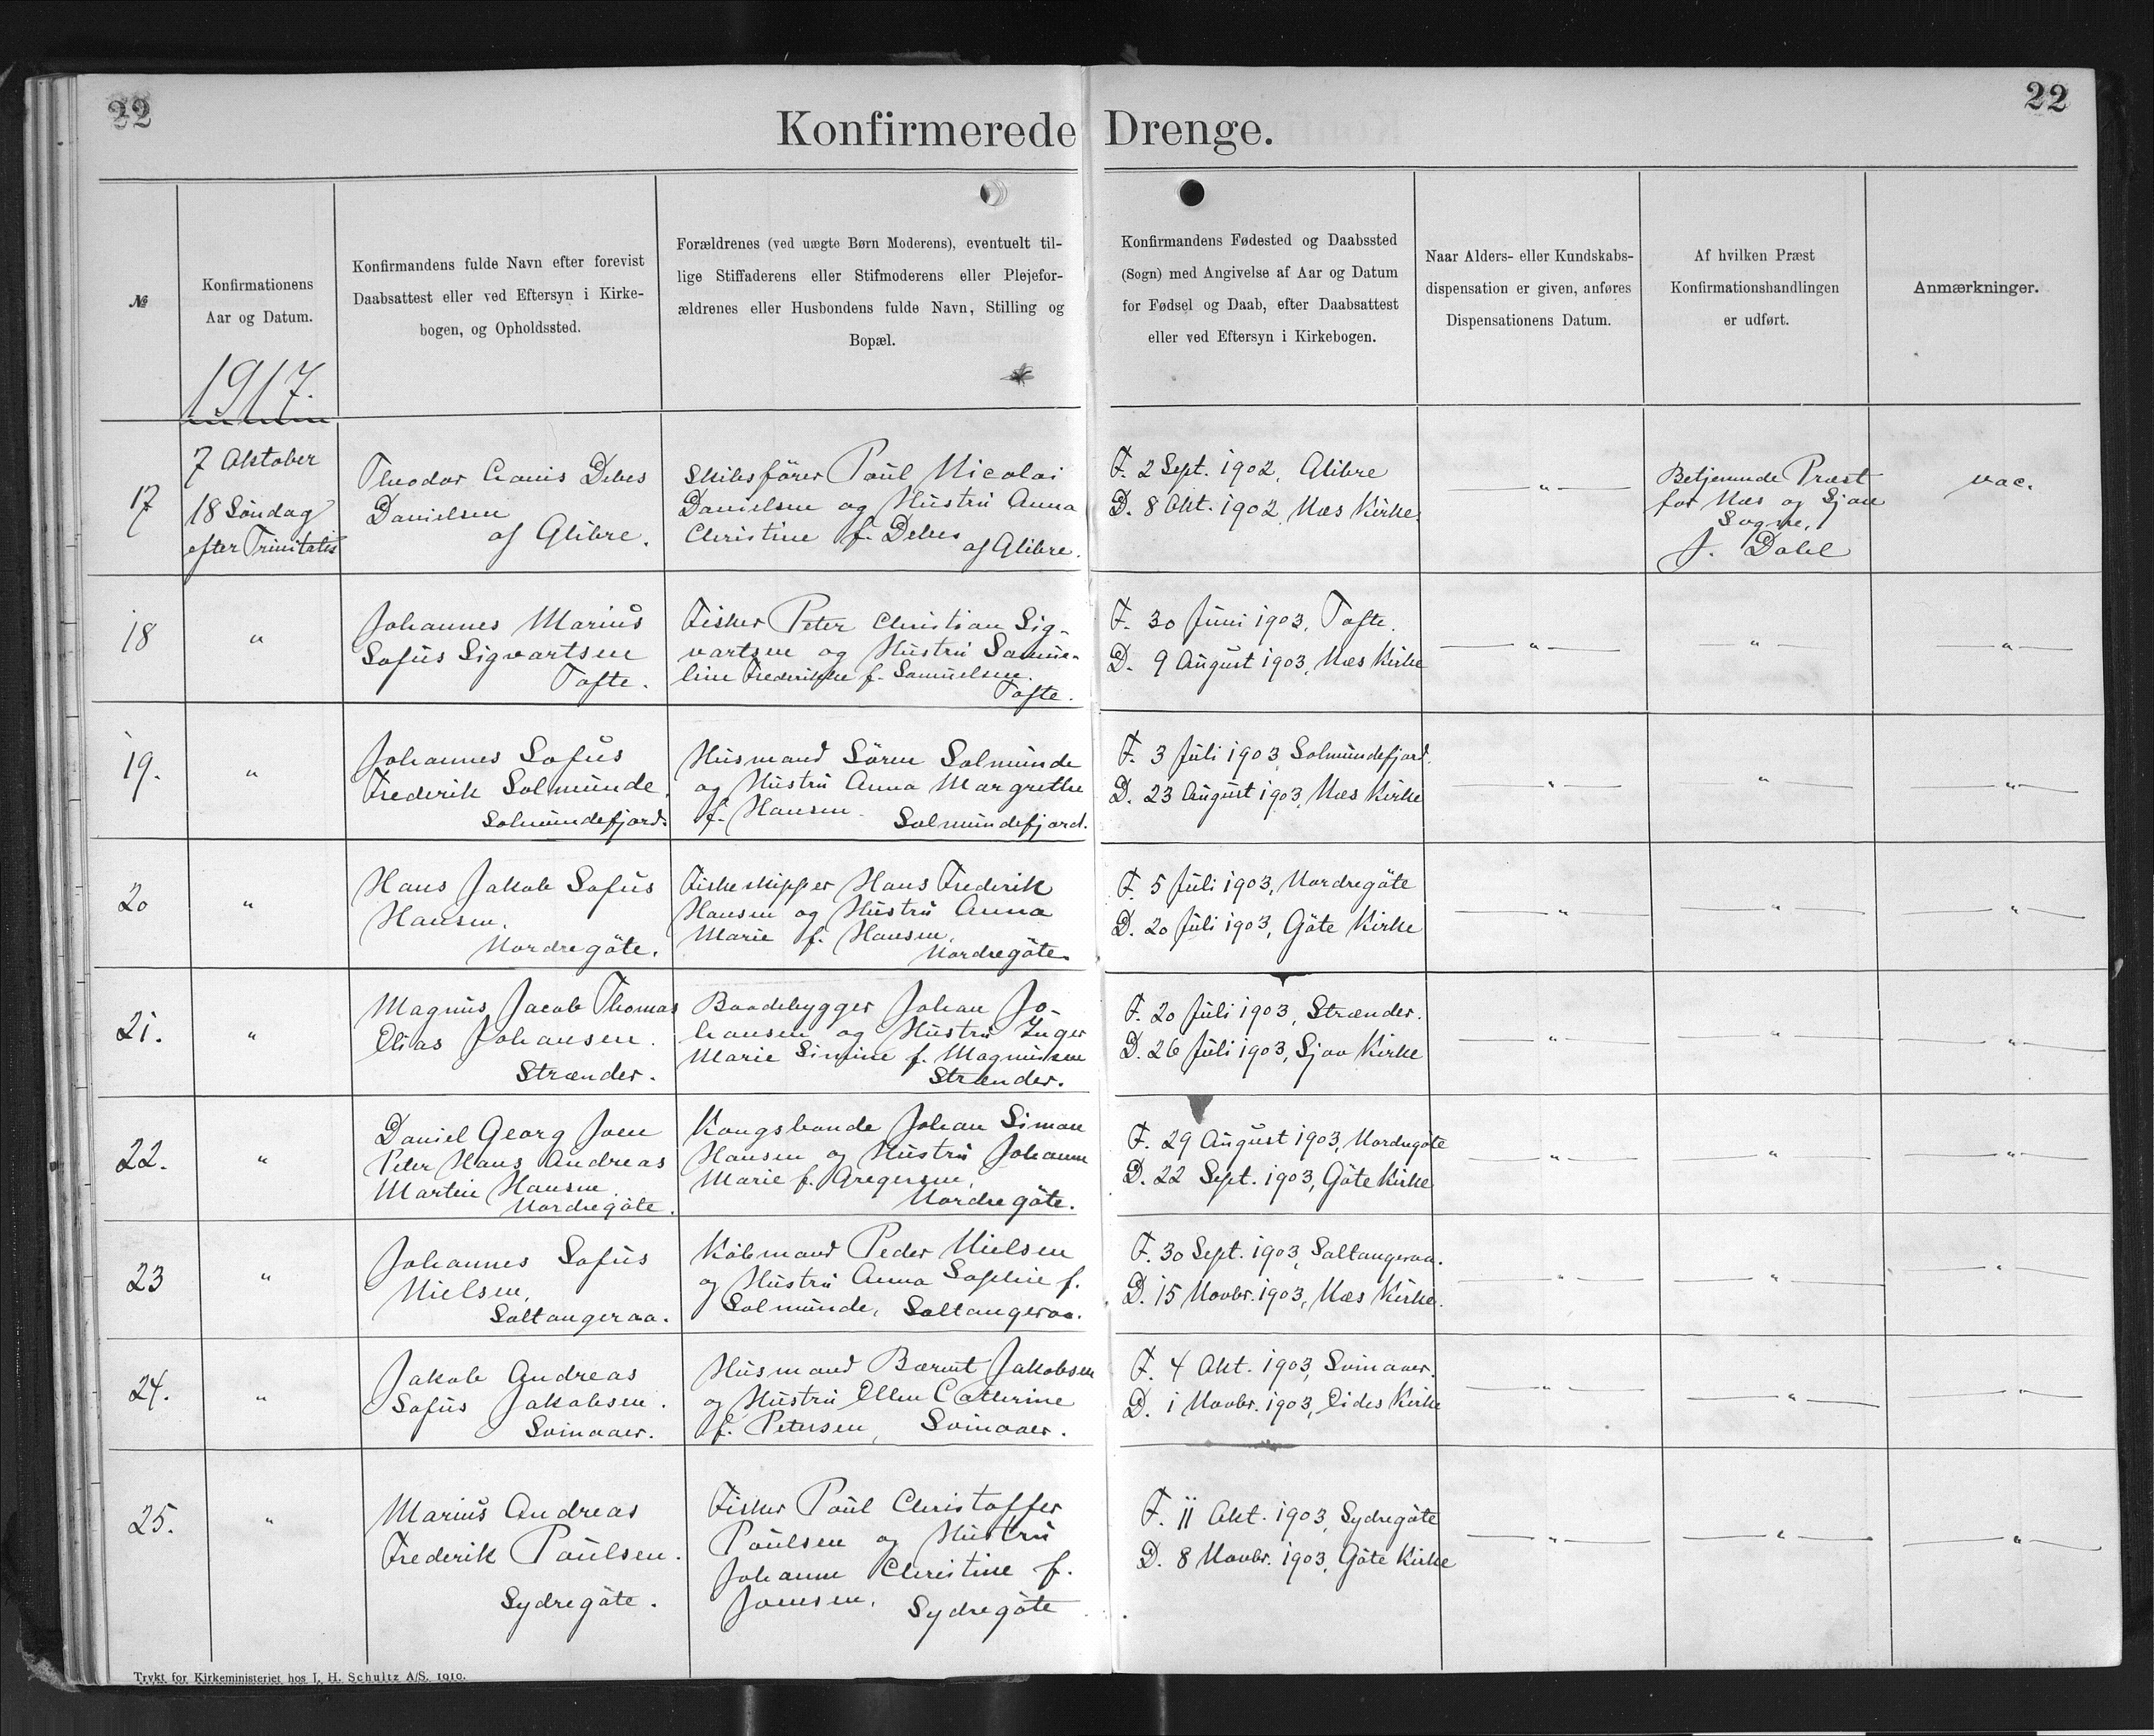 22
22
Konfirmerede Drenge.
№
Konfirmationens
Aar og Datum.
Konfirmandens fulde Navn efter forevist
Daabsattest eller ved Eftersyn i Kirke-
bogen, og Opholdssted.
Forældrenes (ved uægte Børn Moderens), eventuelt til-
lige Stiffaderens eller Stifmoderens eller Plejefor-
ældrenes eller Husbondens fulde Navn, Stilling og
Bopæl.
Konfirmandens Fødested og Daabssted
(Sogn) med Angivelse af Aar og Datum
for Fødsel og Daab, efter Daabsattest
eller ved Eftersyn i Kirkebogen.
Naar Alders- eller Kundskabs-
dispensation er given, anføres
Dispensationens Datum.
Af hvilken Præst
Konfirmationshandlingen
er udført.
Anmærkninger.
1917.
17
7 Oktober
18 Söndag
efter Trinitatis
Theodor Debes
Danielsen
af Glibre.
Skibsförer Poul Nicolai
Danielsen og Hustru Anna
Christine f. Debes
af Glibre.
F. 2 Sept. 1902, Glibre
D. 8 Okt. 1902, Næs Kirke.
"
Betjenende Præst
for Næs og Sjov
Sogne,
J. Dahl
vac.
18
"
Johannes Marius
Sofus Sigvartsen
Tofte.
Fisker Peter Christian Sig-
vartsen og Hustru Samue-
line Frederikke f. Samuelsen.
Tofte.
F. 30 Juni 1903, Tofte.
D. 9 August 1903, Næs Kirke
"
"
"
19.
"
Johannes Sofus
Frederik Solmunde.
Solmundefjord.
Husmand Sören Solmunde
og Hustru Anna Margrethe
f. Hansen.
Solmundefjord.
F. 3 Juli 1903, Solmundefjord.
D. 23 August 1903, Næs Kirke
"
"
"
20
"
Hans Jakob Sofus
Hansen.
Nordregöte.
Fiskeskipper Hans Frederik
Hansen og Hustru Anna
Marie f. Hansen,
Nordregöte.
F. 5 Juli 1903, Nordregöte
D. 20 Juli 1903, Göte Kirke
"
"
"
21.
"
Magnus Jacob Thomas
Elias Johansen.
Strænder.
Baadebygger Johan Jo-
hansen og Hustru Inger
Marie Simine f. Magnussen
Strænder.
F. 20 Juli 1903, Strænder.
D. 26 Juli 1903, Sjov Kirke
"
"
"
22.
"
Daniel Georg Joen
Peter Hans Andreas
Martin Hansen
Nordregöte.
Kongsbonde Johan Simon
Hansen og Hustru Johanne
Marie f. Gregersen,
Nordregöte.
F. 29 August 1903, Nordregöte
D. 22 Sept. 1903, Göte Kirke
"
"
"
23
"
Johannes Sofus
Nielsen,
Saltangeraa.
Köbmand Peder Nielsen
og Hustru Anna Sophie f.
Solmunde, Saltangeraa.
F. 30 Sept. 1903, Saltangeraa.
D. 15 Novbr. 1903, Næs Kirke.
"
"
"
24.
"
Jakob Andreas
Sofus Jakobsen.
Svinaaer.
Husmand Bærent Jakobsen
og Hustru Ellen Catherine
f. Petersen, Svinaaer.
F. 4 Okt. 1903, Svinaaer.
D. 1 Novbr. 1903, Eides Kirke
"
"
"
25.
"
Marius Andreas
Frederik Poulsen.
Sydregöte.
Fisker Poul Christoffer
Poulsen og Hustru
Johanne Christine f.
Joensen. Sydregöte
F. 11 Okt. 1903, Sydregöte
D. 8 Novbr. 1903, Göte Kirke
"
"
"
Trykt for Kirkeministeriet hos J. H. Schultz A/S. 1910.